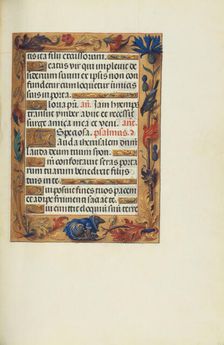 tis ita filii excussorum.
Beatus vir qui implevit de
siderium suum ex ipsis non con
fundetur cum loquetur inimicis
suis in porta.
añ. Iam hyemps
transiit imber abiit et recessit
surge amica mea et veni. añ.
Speciosa. psalmus.
Lauda iherusalem dnm
lauda deum tuum sion.
Qm confortavit seras porta
rum tuarum benedixit filiis
tuis in te.
Qui posuit fines tuos pacem
et adipe frumenti saciat te.
Qui emittit eloquium suum terre